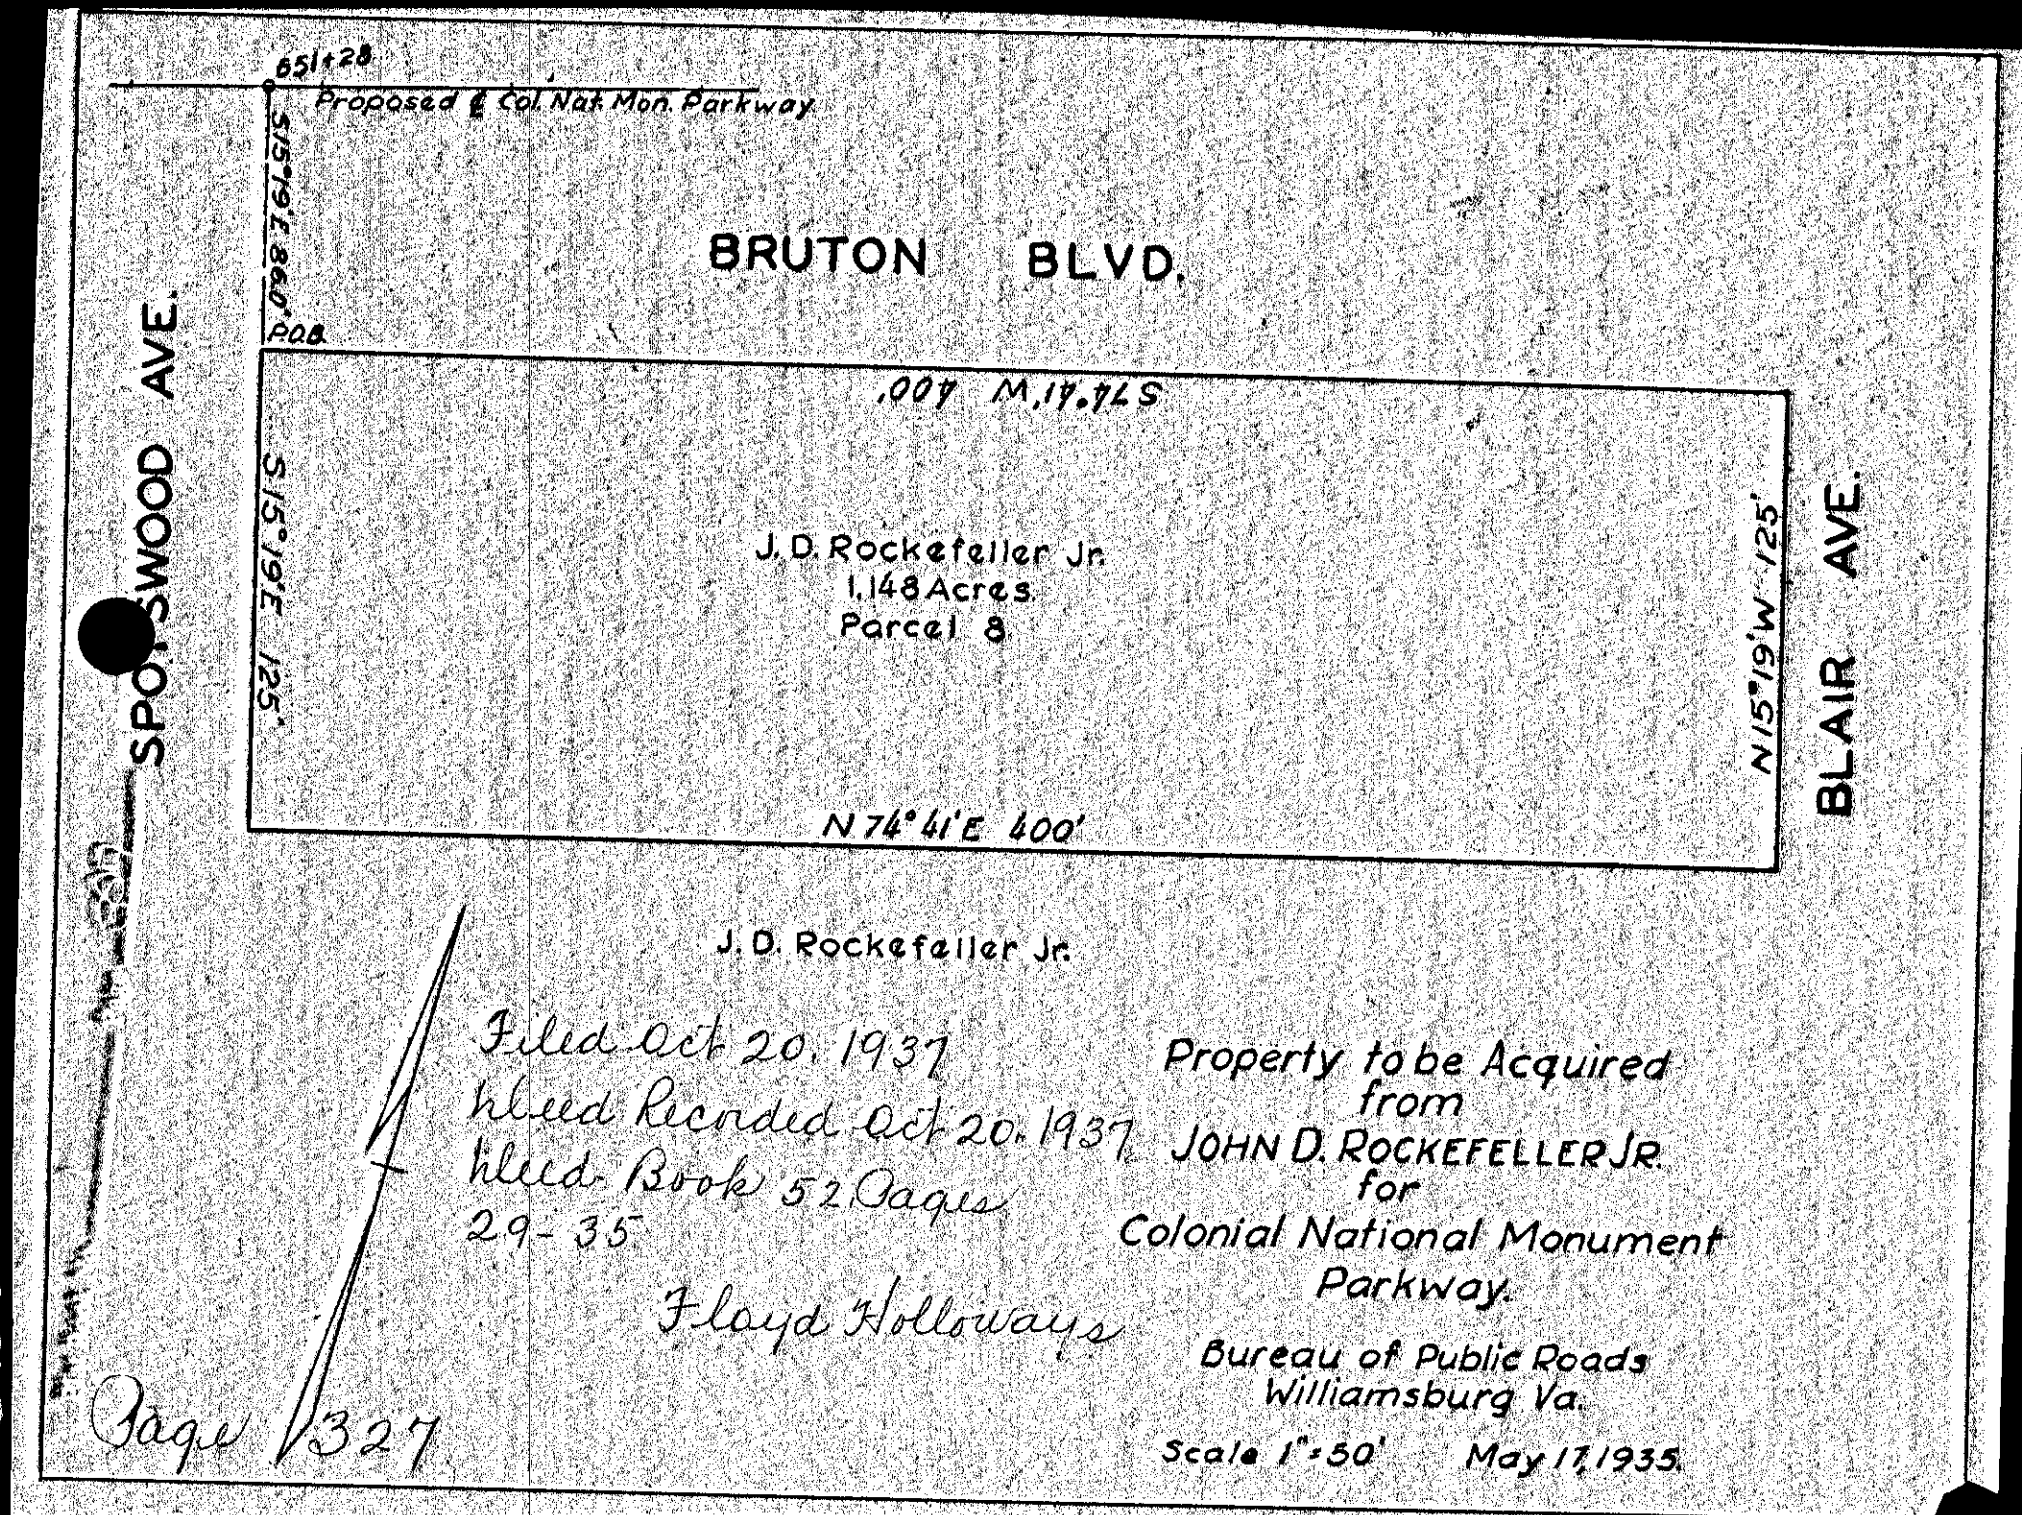 651+28
Proposed ℄ Col. Nat. Mon. Parkway.
S15°19'E 86.0'
P.O.B.
BRUTON BLVD.
SPOTSWOOD AVE.
S 74°41'W 400'
S 15°19'E 125'
J. D. Rockefeller Jr.
1.148 Acres.
Parcel 8.
N15°19'W 125'
BLAIR AVE.
N 74°41'E 400'
J. D. Rockefeller Jr.
Filed Oct 20. 1937
Deed Recorded Oct 20. 1937
Deed Book 52 Pages
29-35
Floyd Holloways
Property to be Acquired
from
JOHN D. ROCKEFELLER JR.
for
Colonial National Monument
Parkway.
Bureau of Public Roads
Williamsburg Va.
Scale 1"=50' May 17, 1935.
Page 327